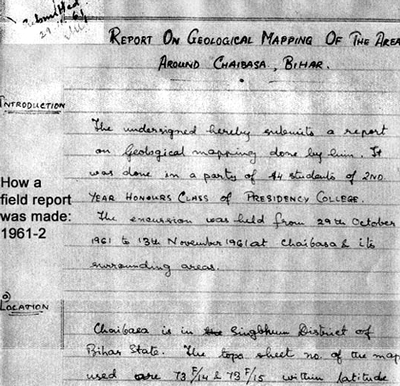 Submitted
29
61
REPORT ON GEOLOGICAL MAPPING OF THE AREA
AROUND CHAIBASA, BIHAR.
INTRODUCTION
The undersigned hereby submits a report
on Geological mapping done by him. It
was done in a party of 14 students of 2ND.
YEAR HONOURS CLASS OF PRESIDENCY COLLEGE.
The excursion was held from 29th October
1961 to 13th November 1961 at Chaibasa & its
surrounding areas.
How a
field report
was made:
1961-2
a)
LOCATION
Chaibasa is in the Singbhum District of
Bihar State. The topo sheet no. of the map
used are 73 F/14 & 73 F/15 within latitude